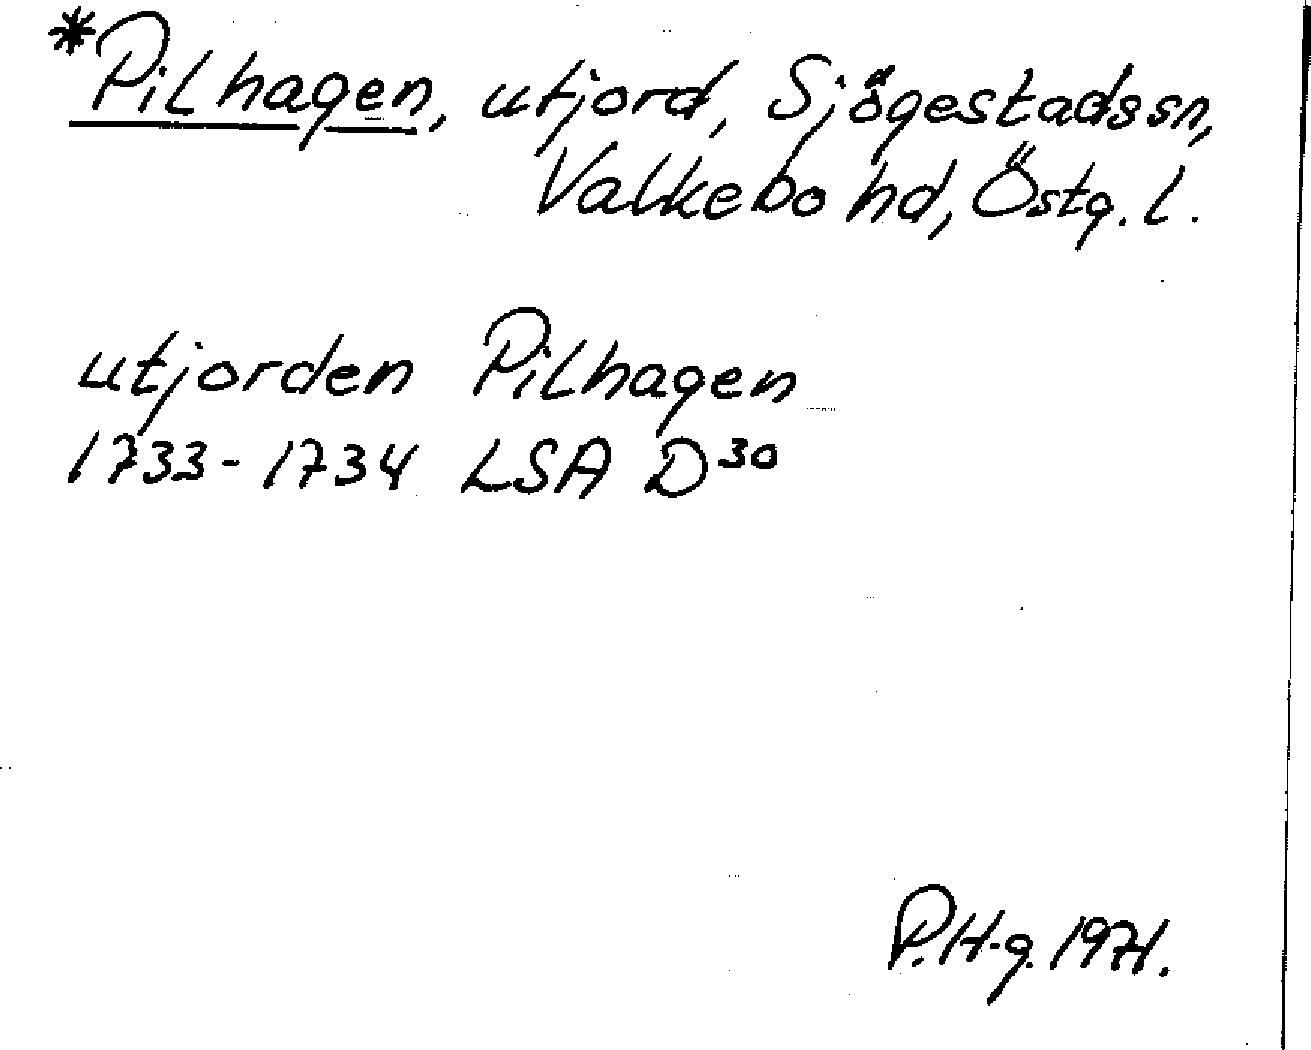 *Pilhagen, utjord, Sjögestads sn,
Valkebo hd, Östg. l.
utjorden Pilhagen
1733-1734 LSA D30
P.H-g. 1971.